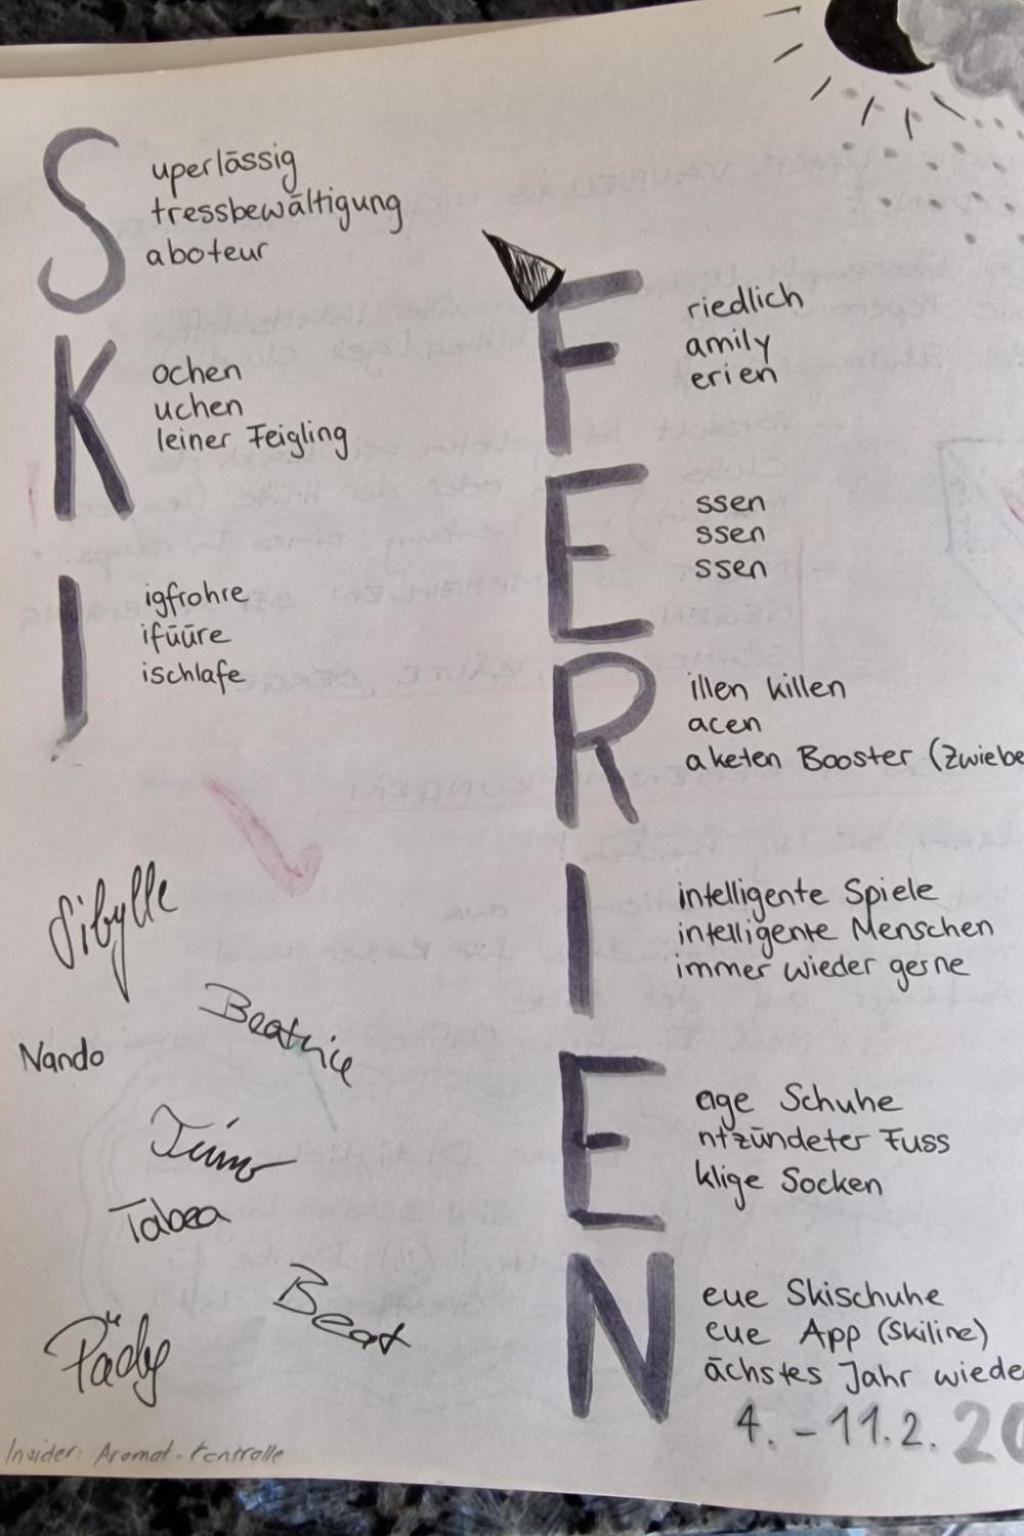 S
uperlässig
tressbewältigung
aboteur
K
ochen
uchen
leiner Feigling
I
igfrohre
ifüüre
ischlafe
F
riedlich
amily
erien
E
ssen
ssen
ssen
R
illen killen
acen
aketen Booster (Zwiebe
I
intelligente Spiele
intelligente Menschen
immer wieder gerne
E
nge Schuhe
ntzündeter Fuss
klige Socken
N
eue Skischuhe
eue App (Skiline)
ächstes Jahr wiede
4. - 11.2. 20
Sibylle
Beatrice
Nando
Timo
Tabea
Beat
Pädy
Insider: Aromat-Kontrolle